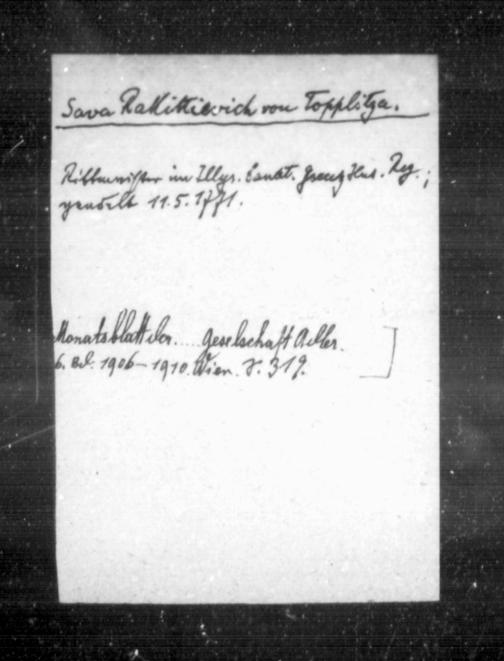 Sava Rakittievich von Topplitza.
Rittmeister im Illyr. Banat. Grenz Hus. Reg.;
geadelt 11.5.1771.
Monatsblatt der.... Geselschaft Adler.
6. Bd. 1906-1910. Wien. S. 319.